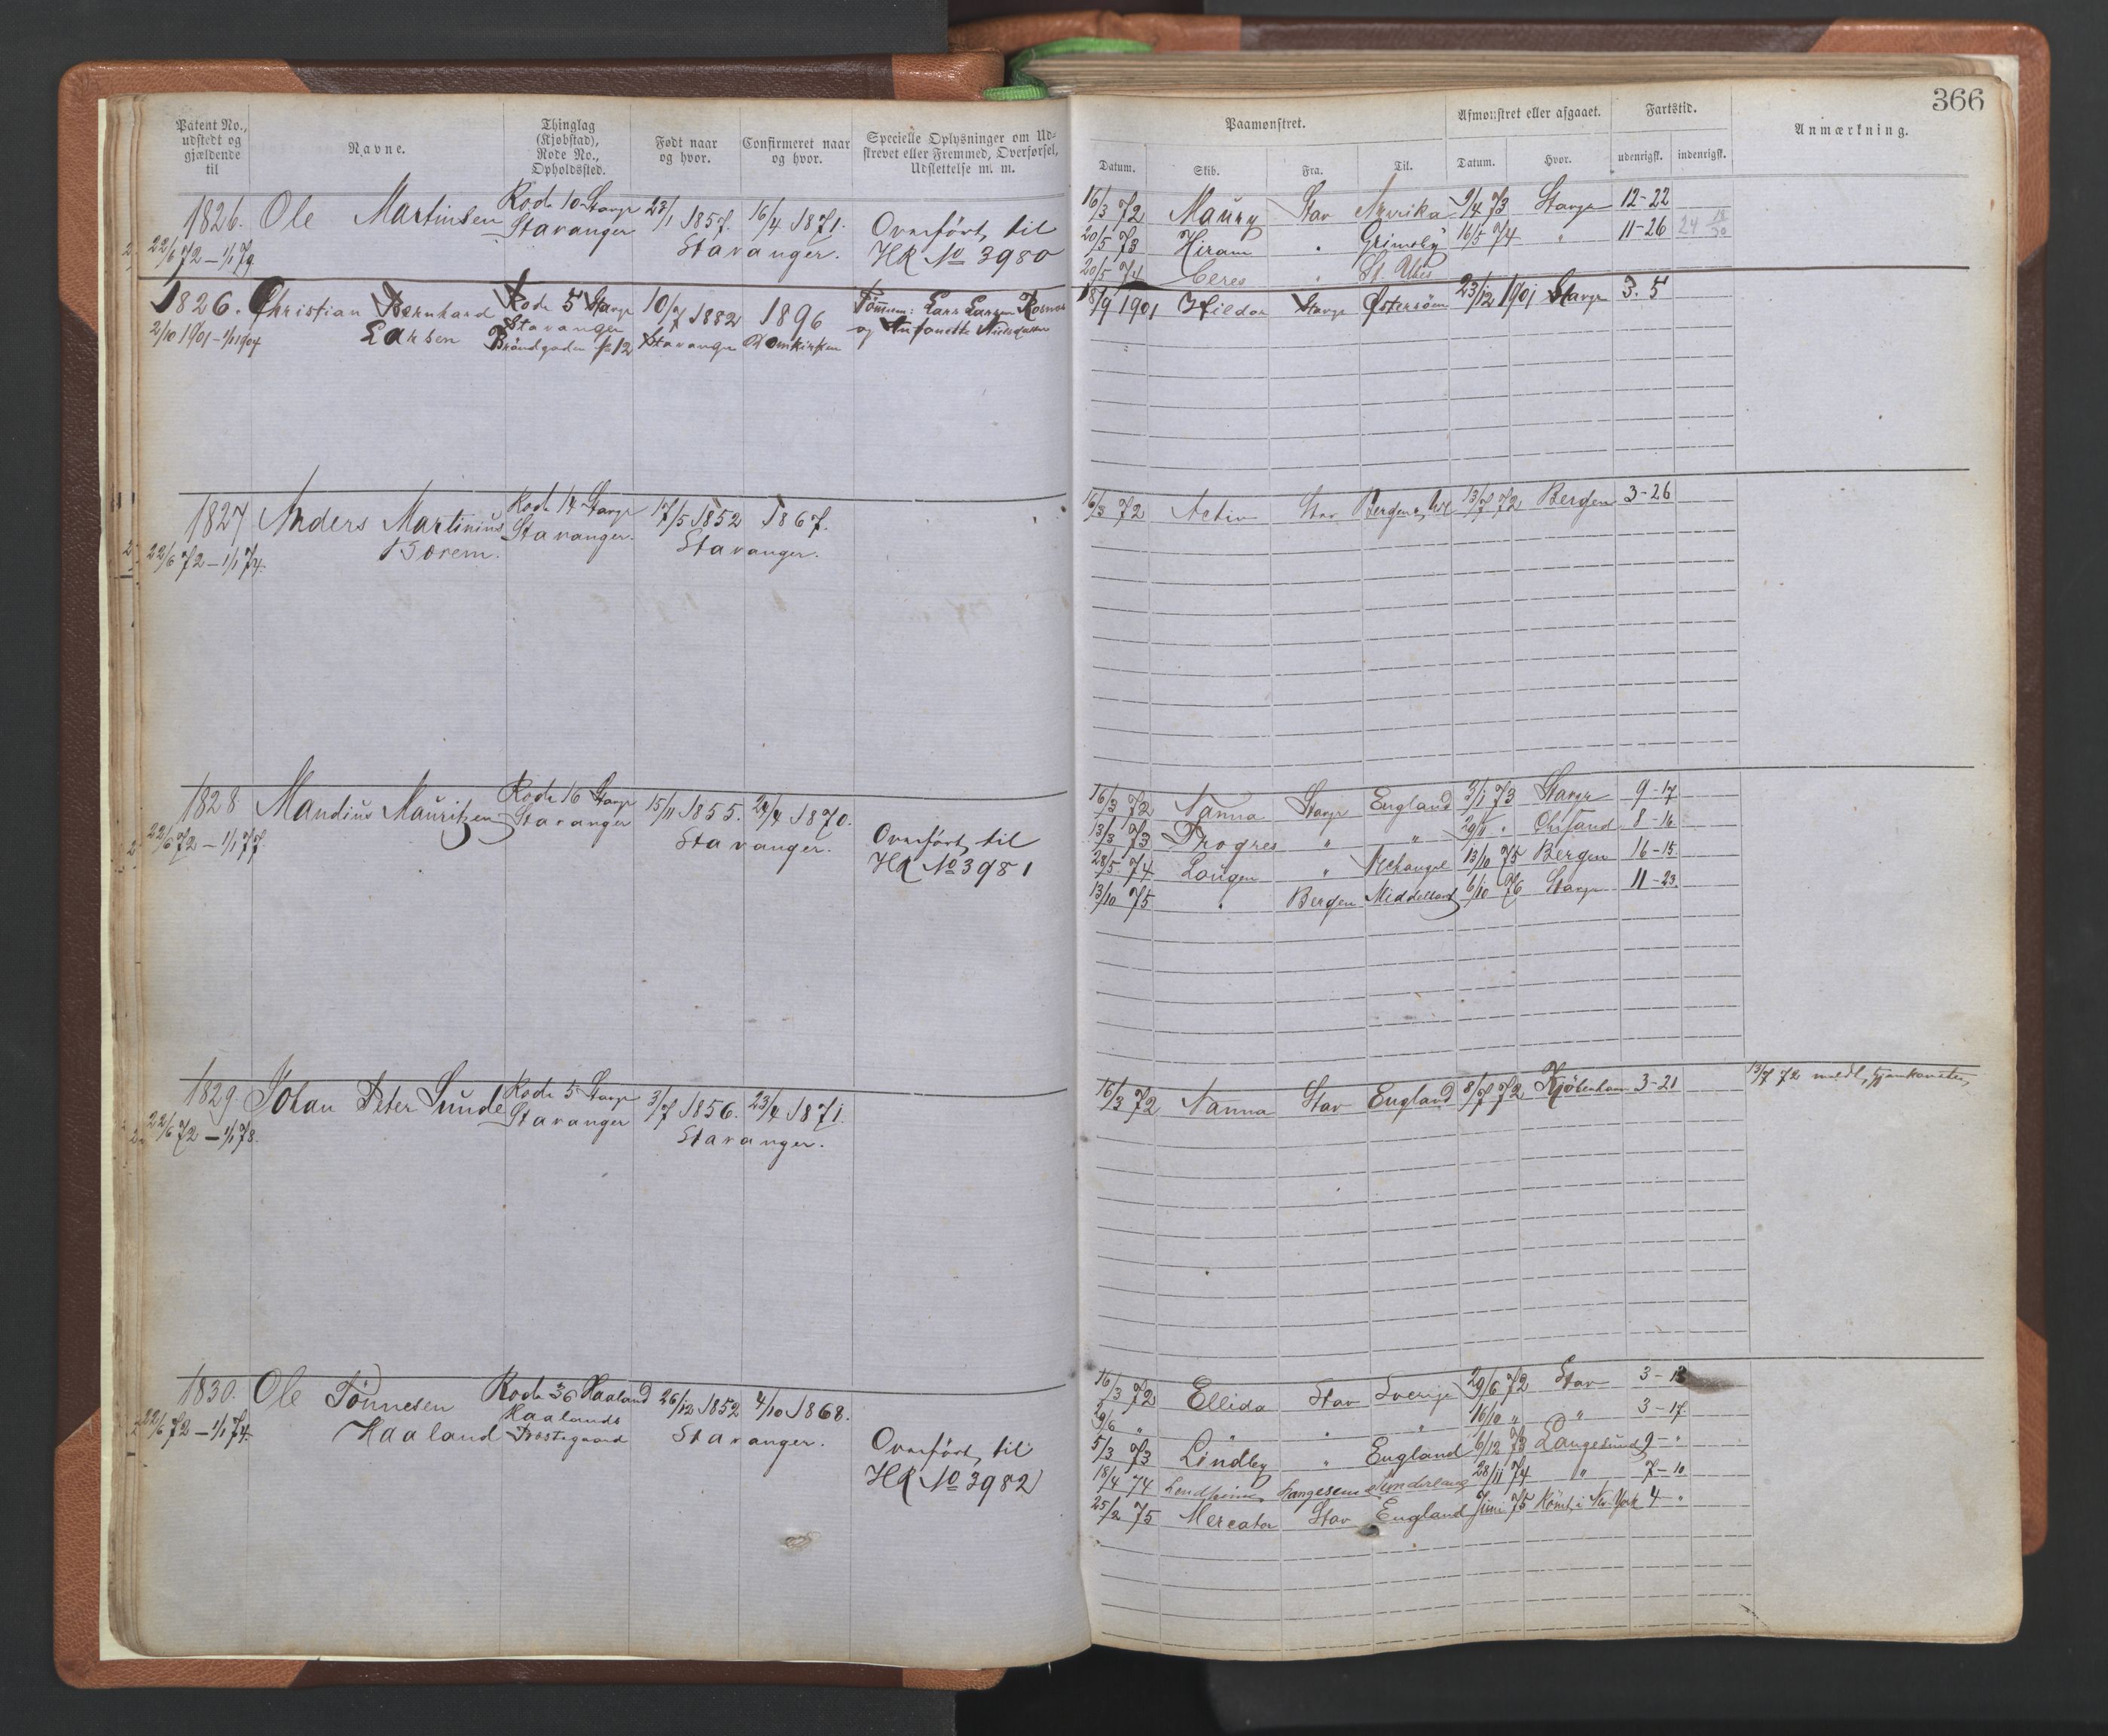 366
Patent No., udstedt og gjældende til
Navne.
Thinglag (Kjøbstad), Rode No., Opholdssted.
Født naar og hvor.
Confirmeret naar og hvor.
Specielle Oplysninger om Udskrevet eller Fremmed, Overførsel, Udslettelse m. m.
Paamønstret.
Afmønstret eller afgaaet.
Fartstid.
Anmærkning.
Datum. Skib. Fra. Til. Datum. Hvor. udenrigst. indenrigst.
1826. Ole Martinsen Rode 10 Stavgr 23/1 1857. 16/4 1871.
22/6 72 – 1/1 79 Stavanger Stavanger. Overført til
HR No 3980
16/3 72 Maury Stav Amerika 9/4 73 Stavgr 12-22
20/5 73 Hiram " Grimsby 16/5 74 " 11-26
20/5 74 Ceres " St. Ubes
1826. Christian Bernhard Rode 5 Stavgr 10/7 1882 1896
2/10 1901 – 1/1 1904 Larsen Stavanger Stavanger Domkirken
18/9 1901 Hildor Stavgr Østersøen 23/12 1901 Stavgr 3. 5
1827 Anders Martinius Rode 14 Stavgr 17/5 1852 1867.
22/6 72 – 1/1 74. Borem. Stavanger. Stavanger.
16/3 72 Activ Stav 13/7 72 Bergen 3-26
1828 Mandius Mauritzen Rode 16 Stavgr 15/11 1855. 24/4 1870.
22/6 72 – 1/1 77 Stavanger Stavanger. Overført til
HR No 3981
16/3 72 Nanna Stavgr England 3/1 73 Stavgr 9-17
13/3 73 Progres " " 29/11 " Chrsand 8-16
28/5 74 Lougen " Archangel 13/10 75 Bergen 16-15
13/10 75 " Bergen Middelhavet 6/10 76 Stavgr 11-23
1829 Johan Peter Sunde Rode 5 Stavgr 3/7 1856. 23/4 1871.
22/6 72 – 1/1 78. Stavanger Stavanger.
16/3 72 Nanna Stav England 8/7 72 Kjöbenhavn 3-21
13/7 72 medl,
1830. Ole Tönnesen Rode 36 Haaland 26/12 1852 4/10 1868.
22/6 72 – 1/1 74. Haaland Haalands Prestegaard Stavanger. Overført til
HR No 3982
16/3 72 Ellida Stav Sverige 29/6 72 Stav 3-13
9/6 " " " " 16/10 " " 3-17
5/3 73 Lindby " England 6/12 73 Langesund 9-"
18/4 74 28/11 74 " 7-10
25/2 75 Mercator Stav England Juni 75 Römt i New York 4 "